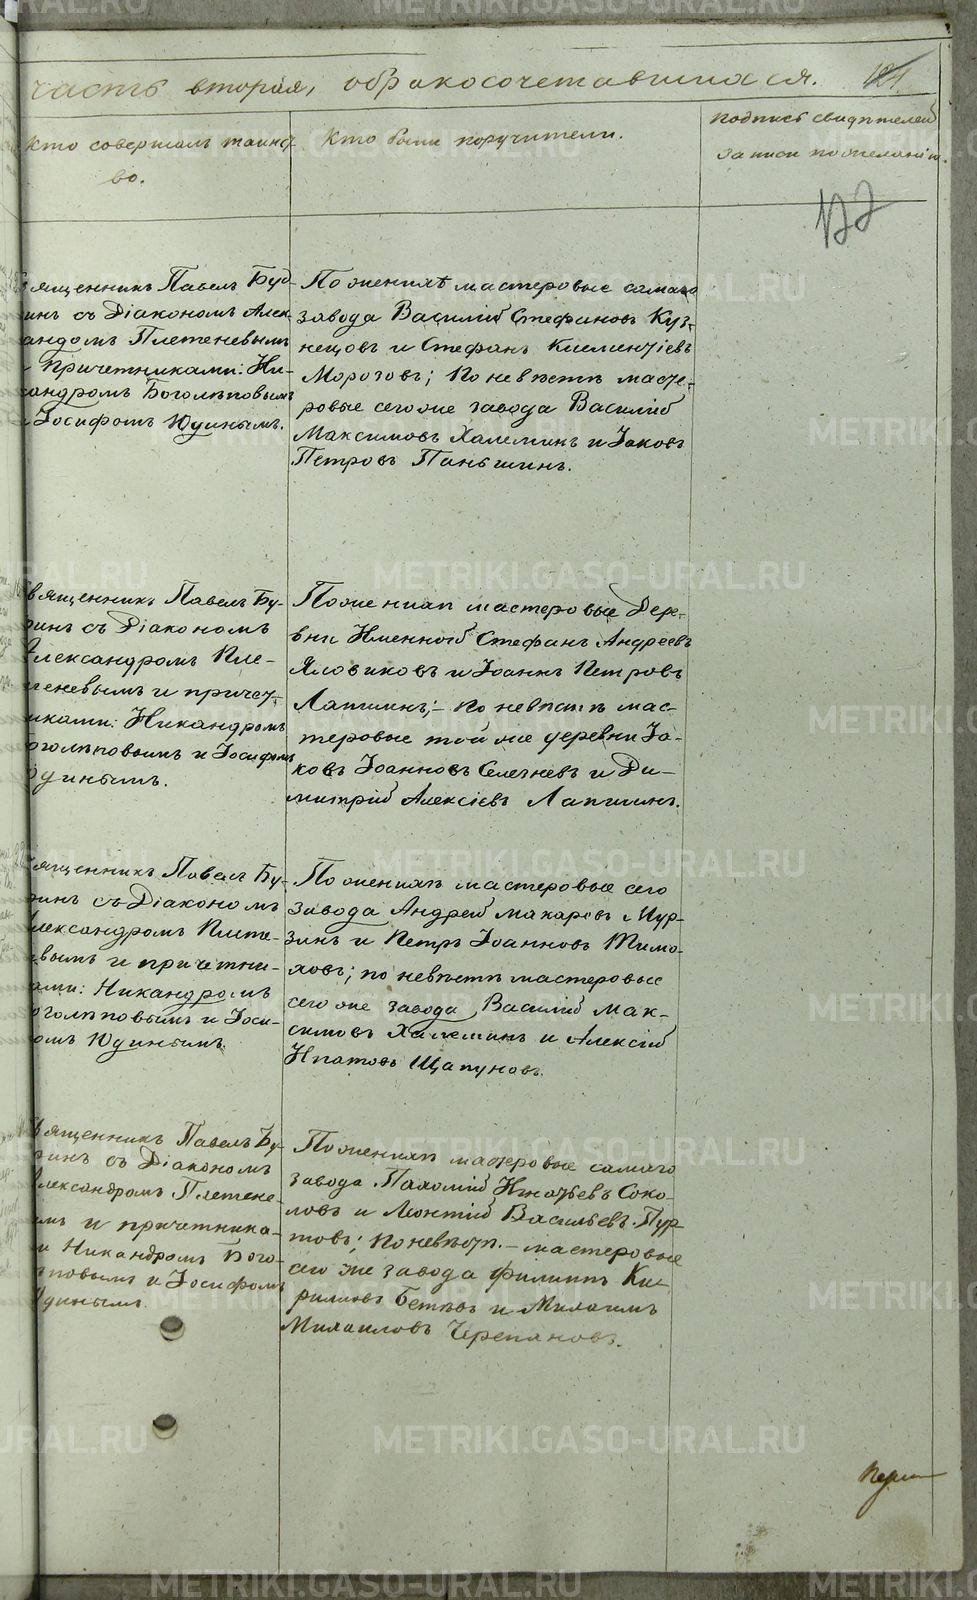 часть вторая, обракосочетавшихся. 121.
Кто совершалъ таинс-
во.
Кто были поручители.
подпись свидѣтелей
записи пожеланію.
122
ященникъ Павелъ Буд-
инъ съ Діакономъ Алек-
андромъ Плетеневымъ
причетниками: Ни-
андромъ Боголѣповымъ
Іосифомъ Юдинымъ.
По женихѣ мастеровые самаго
завода Василій Стефановъ Куз-
нецовъ и Стефанъ Климентіевъ
Морозовъ; По невѣстѣ масте-
ровые сегоже завода Василій
Максимовъ Халеминъ и Іаковъ
Петровъ Паньшинъ.
вященникъ Павелъ Бу-
инъ съ Діакономъ
Александромъ Пле-
теневымъ и причет-
иками: Никандромъ
оголѣповымъ и Іосифомъ
Юдинымъ.
По женихѣ мастеровые Дере-
вни Именной Стефанъ Андреевъ
Яловиковъ и Іоаннъ Петровъ
Лапшинъ; – по невѣстѣ мас-
теровые той же деревни Іа-
ковъ Іоанновъ Селезневъ и Ди-
митрій Алексіевъ Лапшинъ.
ященникъ Павелъ Бу-
инъ съ Діакономъ
Александромъ Плете-
евымъ и причетни-
ами: Никандромъ
оголѣповымъ и Іоси-
омъ Юдинымъ.
По женихѣ мастеровые сего
завода Андрей Макаровъ Мур-
зинъ и Петръ Іоанновъ Тимо-
ховъ; по невѣстѣ мастеровые
сего же завода Василій Мак-
симовъ Халеминъ и Алексій
Ипатовъ Щапуновъ.
вященникъ Павелъ Бу-
инъ съ Діакономъ
Александромъ Плетене-
ымъ и причетника-
и Никандромъ Бого-
ѣповымъ и Іосифомъ
Юдинымъ.
По женихѣ мастеровые самаго
завода Пахомій Игнатьевъ Соко-
ловъ и Леонтій Васильевъ Пур-
товъ; По невѣстѣ. – мастеровые
сего же завода Филиппъ Ки-
риловъ Бетевъ и Михаилъ
Михаиловъ Черепановъ.
METRIKI.GASO-URAL.RU